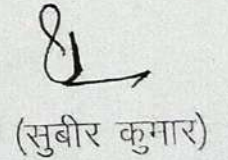 (सुबीर कुमार)